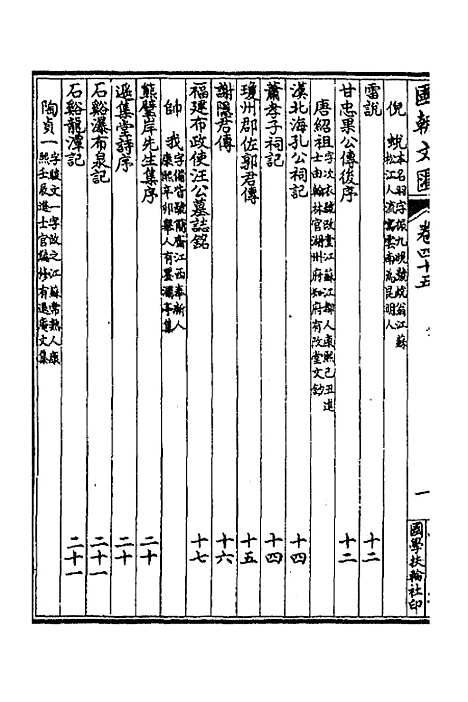 國朝文匯 卷四十五 一 國學扶輪社印
倪蛻 本名羽字振九晚號蛻翁江蘇松江人流寓雲南為昆明人
雷說 十二
甘忠果公傳後序 十二
唐紹祖 字次衣號改堂江蘇江都人康熙己丑進士由翰林官湖州府知府有改堂文鈔
漢北海孔公祠記 十四
蕭孝子祠記 十四
瓊州郡佐郭君傳 十五
謝隱君傳 十六
福建布政使汪公墓誌銘 十七
帥我 字備皆號簡齋江西奉新人康熙辛卯舉人有墨瀾亭集
熊檗岸先生集序 二十
遥集堂詩序 二十
石谿瀑布泉記 二十一
石谿龍潭記 二十一
陶貞一 字駿文一字改之江蘇常熟人康熙壬辰進士官編修有退庵文集